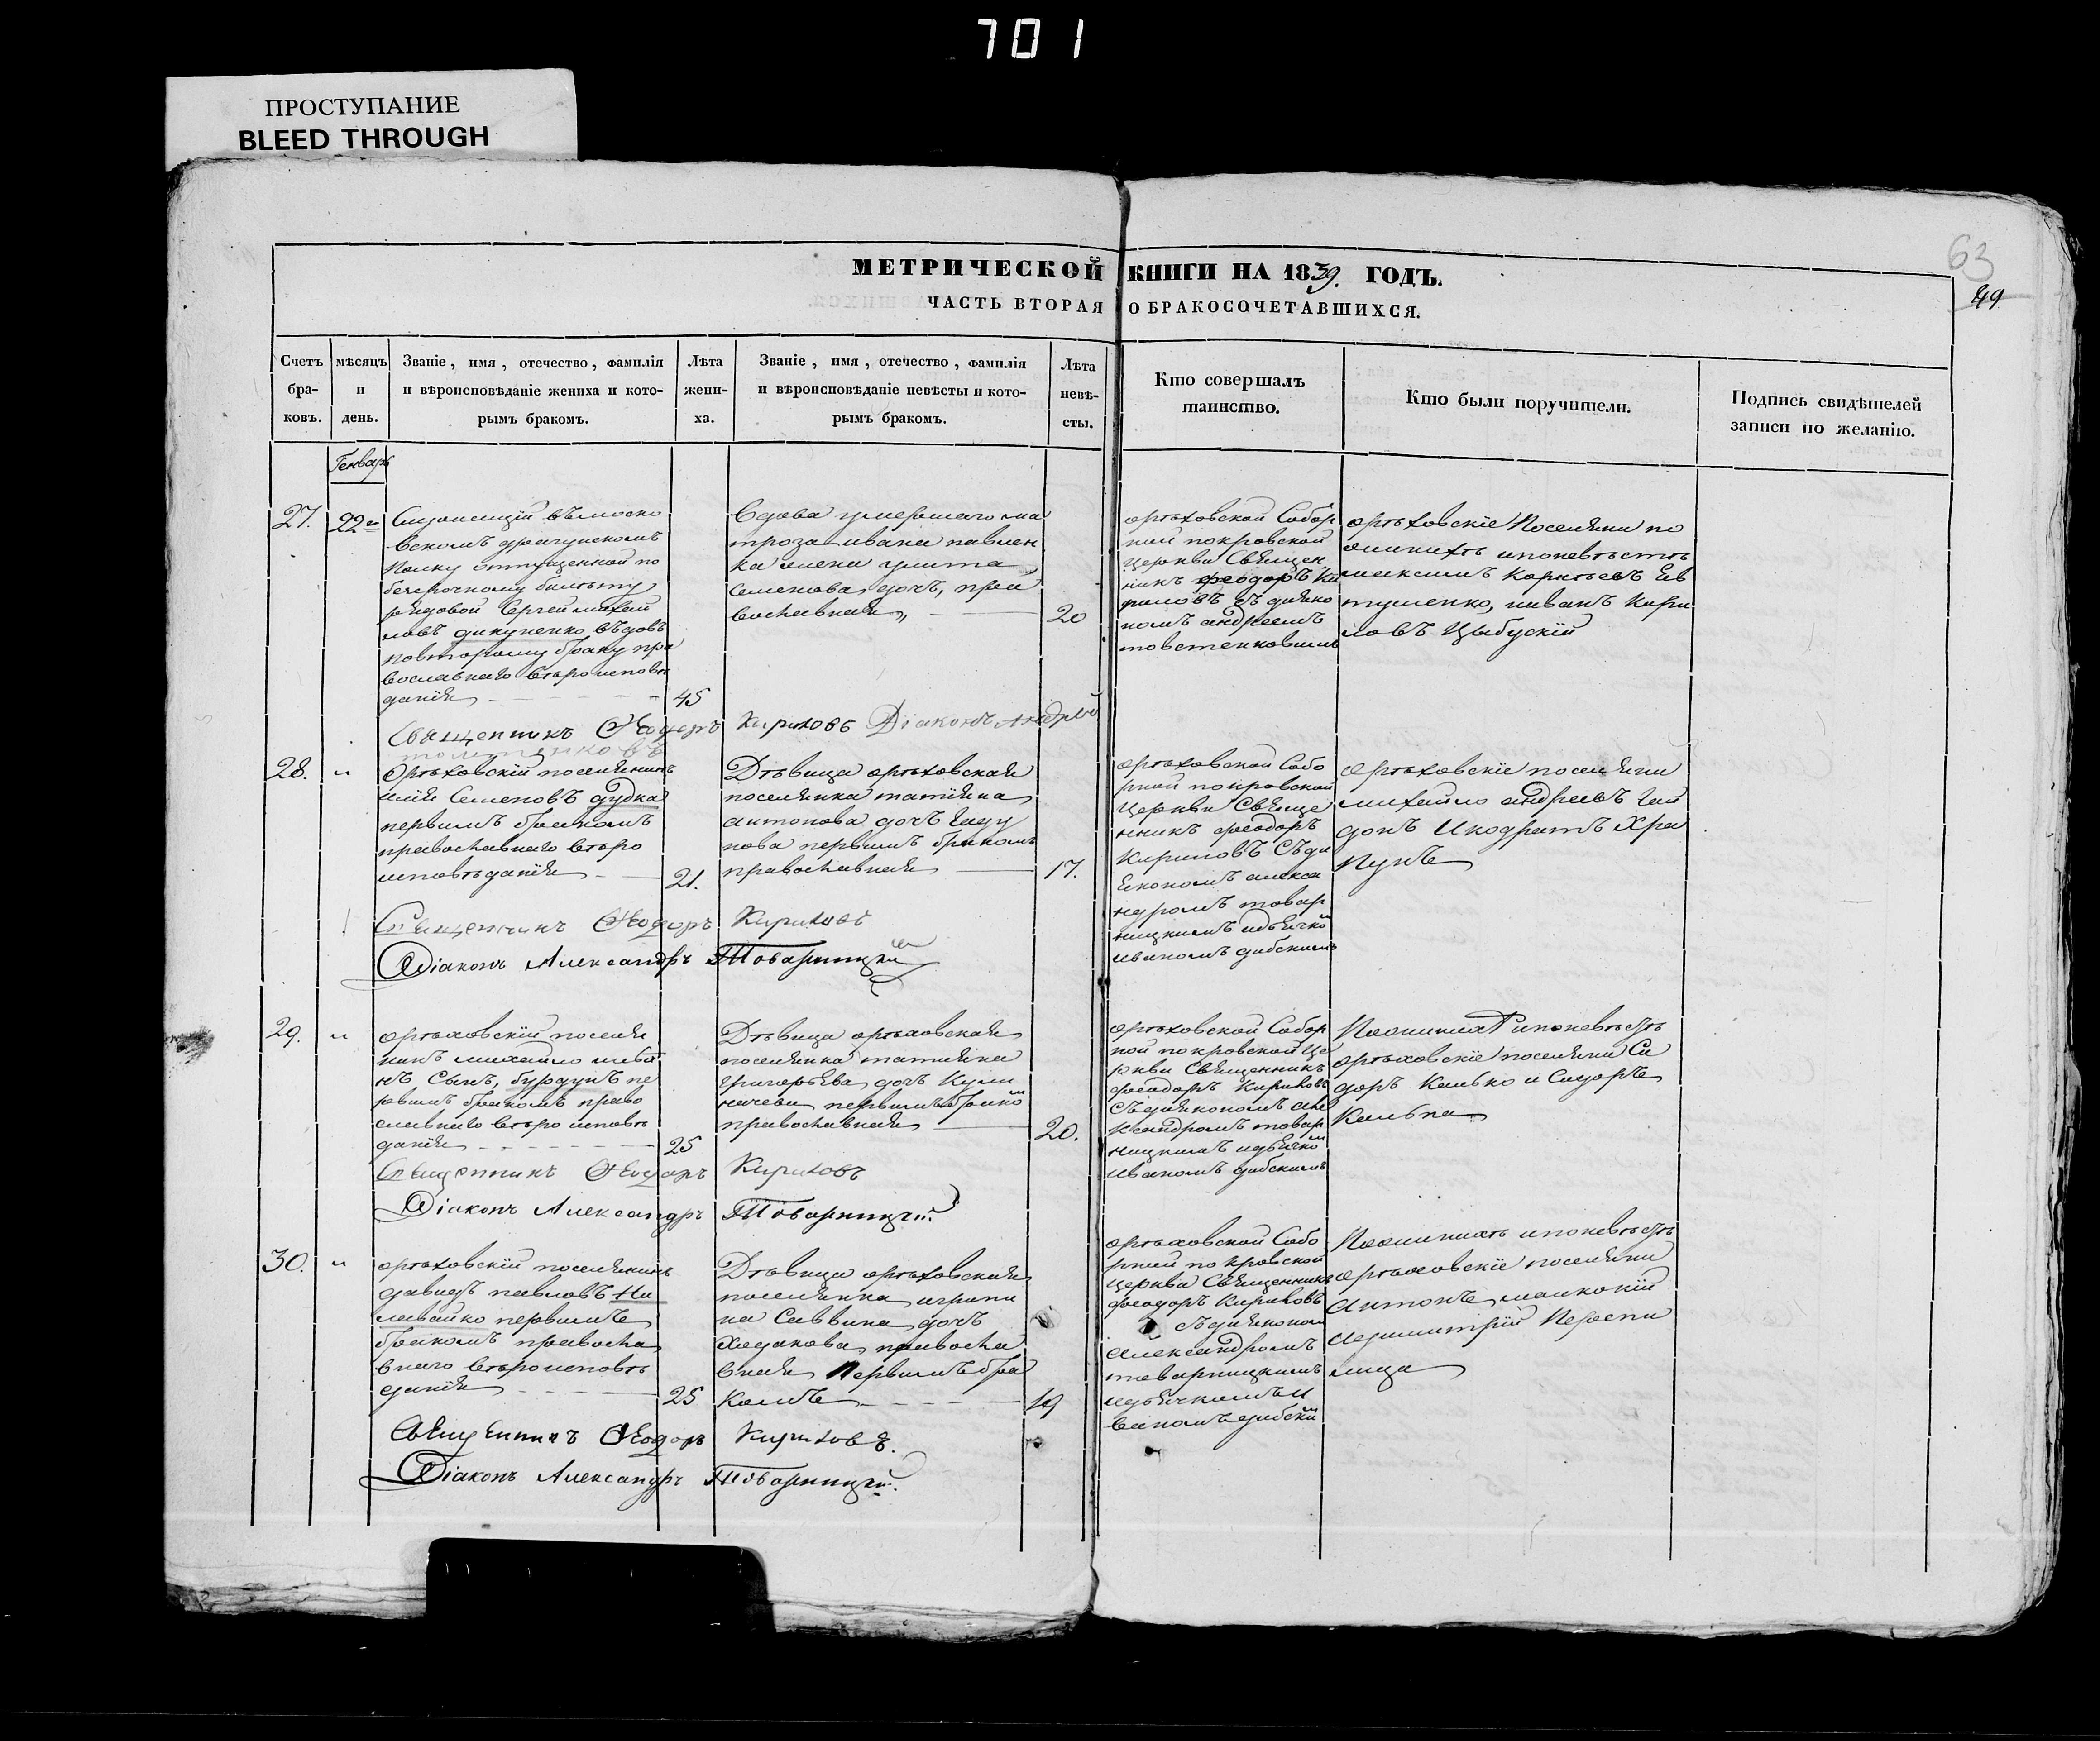 701
ПРОСТУПАНИЕ
BLEED THROUGH
63
49
МЕТРИЧЕСКОЙ КНИГИ НА 1839. ГОДЪ.
ЧАСТЬ ВТОРАЯ О БРАКОСОЧЕТАВШИХСЯ.
Счетъ
бра-
ковъ.
мѣсяцъ
и
день.
Званіе, имя, отечество, фамилія
и вѣроисповѣданіе жениха и кото-
рымъ бракомъ.
Лѣта
жени-
ха.
Званіе, имя, отечество, фамилія
и вѣроисповѣданіе невѣсты и кото-
рымъ бракомъ.
Лѣта
невѣ-
сты.
Кто совершалъ
таинство.
Кто были поручители.
Подпись свидѣтелей
записи по желанію.
Генварь
27.
22го
въ моско
вскомъ драгунскомъ
полку отпущенной по
безсрочному билету
рядовой Сергей михай
ловъ дикуненко вдовъ
повторому браку пра
вославнаго вѣроисповѣ
данія
45
Вдова умершаго ма
троза ивана павлен
ка жена улита
семенова дочь, пра
вославная
20
орѣховской Собор
ной покровской
церкви Священ
никъ феодоръ Ки
риловъ съ диако
номъ андреемъ
товстенковимъ
орѣховскіе Поселяни по
женихѣ и поневѣстѣ
максимъ Корнѣевъ Ев
тушенко, иванъ Кири
ловъ Цыбускій
Священникъ Феодоръ Кириловъ Діаконъ Андрей
28.
"
Орѣховскій поселянинъ
илія Семеновъ дудка
первымъ бракомъ
православнаго вѣро
исповѣданія
21.
Дѣвица орѣховская
поселянка татіяна
антонова дочь гаду
нова первымъ бракомъ
православная
17.
орѣховской Собо
рной покровской
Церкви Свяще
нникъ феодоръ
Кириловъ Съ ди
якономъ алекса
ндромъ товар
ницкимъ идьячко
иваномъ дибскимъ
Орѣховскіе поселяни
михайло андреевъ гай
донъ Икодратъ Хра
пунъ
Священникъ Феодоръ Кириловъ
Діаконъ Александръ Товарницкій
29.
"
орѣховскій поселя
нинъ михайло
нъ Сынъ, бурдунъ пе
рвымъ бракомъ право
славнаго вѣро исповѣ
данія
25
Дѣвица орѣховская
поселянка татіяна
григорьева дочь Кули
ничева первымъ брако
православная
20.
орѣховской Собор
ной покровской Це
ркви Священникъ
феодоръ Кириловъ
Съ діякономъ але
ксандромъ товар
ницкимъ идьячко
иваномъ дибскимъ
Пожениха и поневѣстѣ
орѣховскіе поселяни Си
доръ Калько и Сидоръ
Священникъ Феодоръ Кириловъ
Діаконъ Александръ Товарницкій
30.
"
орѣховскій поселянинъ
давидъ павловъ Ни
ливайко первымъ
бракомъ правосла
внаго вѣроисповѣ
данія
25
Дѣвица орѣховская
поселянка агрипи
на Саввина дочь
Ходакова правосла
вная Первымъ бра
комъ
19
орѣховской Собо
рной покровской
церкви Священникъ
феодоръ Кириловъ
съ діякономъ
александромъ
товарницкимъ
идьячкомъ и
ваномъ дибски
Поженихѣ и поневѣстѣ
орѣховскіе поселяни
Антонъ
идимитрій Перепи
лица
Священникъ Феодоръ Кириловъ.
Діаконъ Александръ Товарницкій.